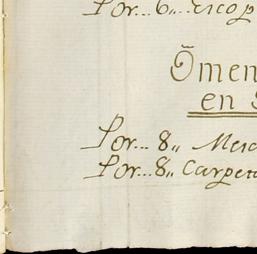 Por... 6,, Escop
Õmen
en S
Por... 8,, Mesa
Por... 8,, Carpeta